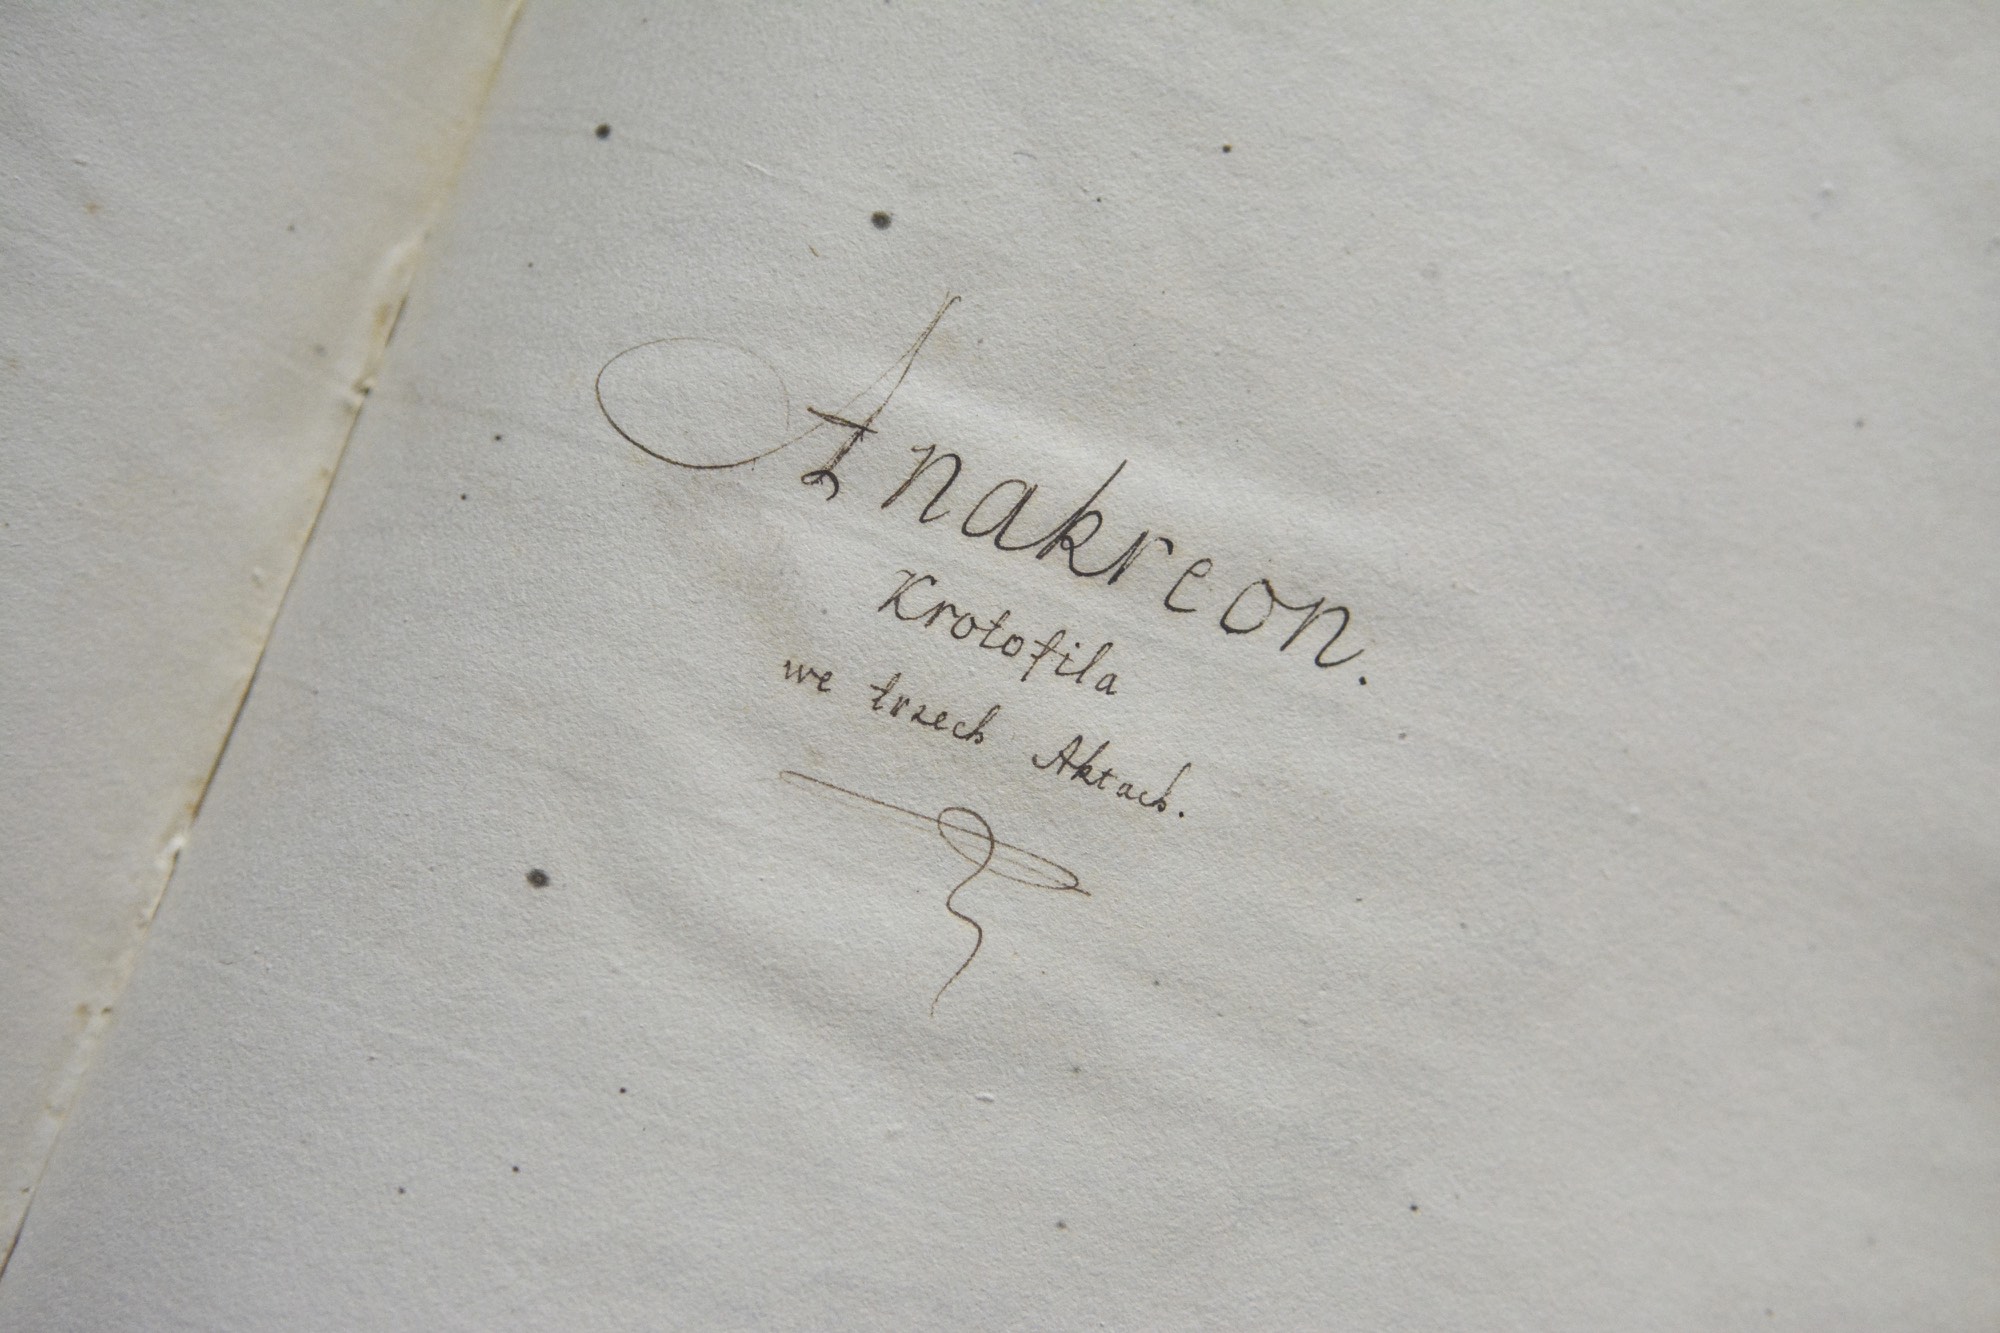 Anakreon.
Krotofila
we trzech Aktach.